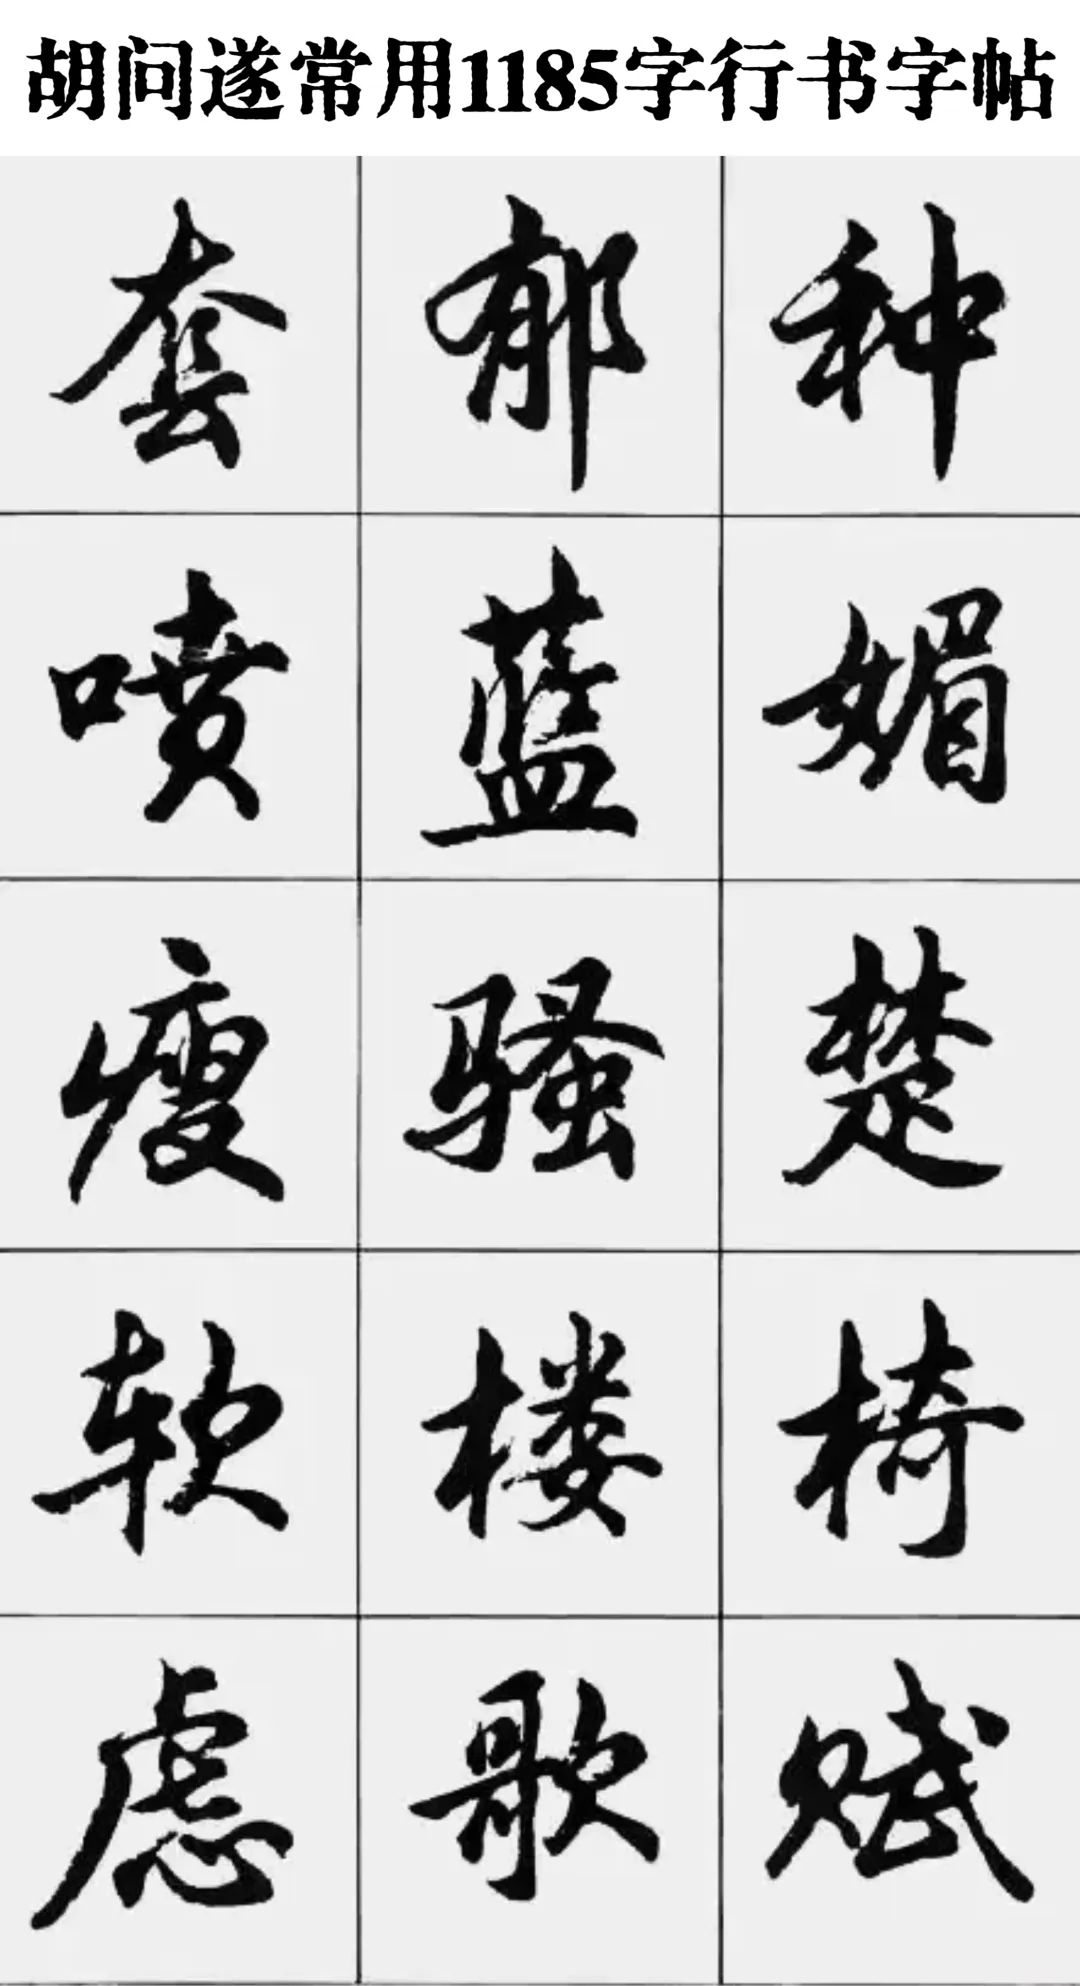 胡问遂常用1185字行书字帖
套郁种
喷蓝媚
瘦骚楚
软楼椅
虑歌赋